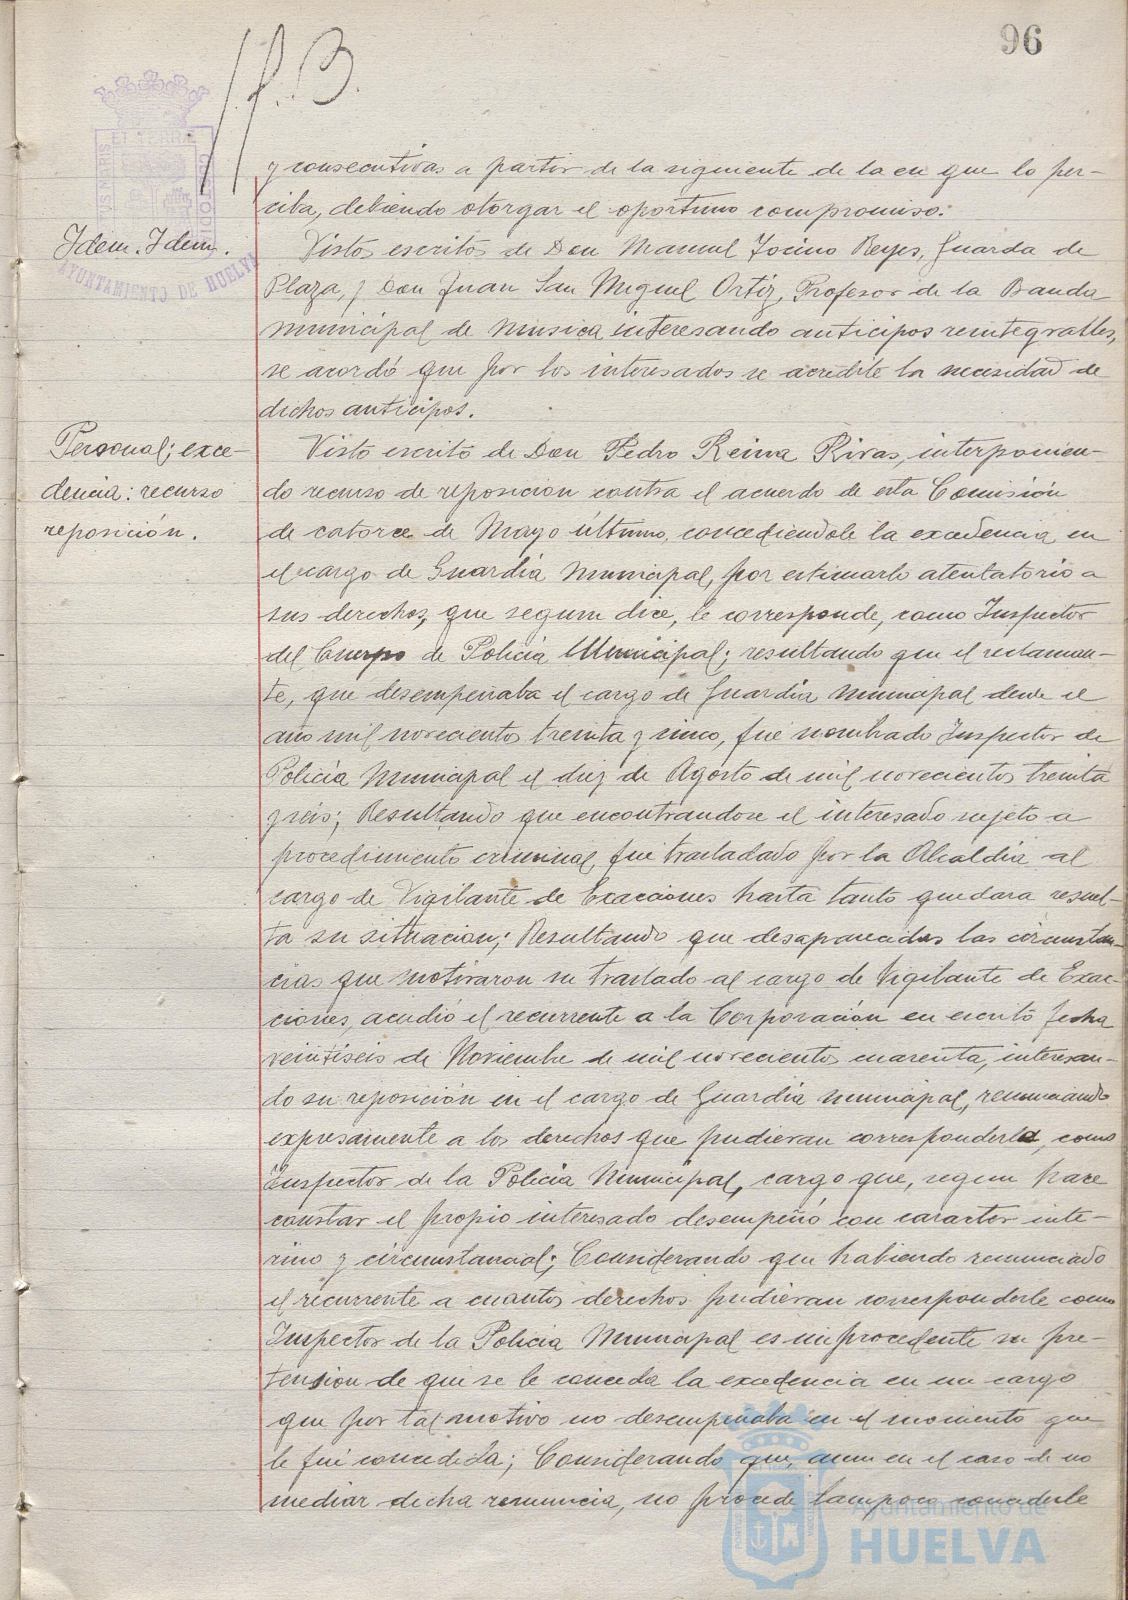 96
y consecutivas a partir de la siguiente de la en que lo per-
ciba, debiendo otorgar el oportuno compromiso.
Idem. Idem.
Vistos escritos de Don Manuel Jocino Reyes, Guarda de
Plaza, y Don Juan San Miguel Ortiz, Profesor de la Banda
municipal de Musica interesando anticipos reintegrables,
se acordó que por los interesados se acredite la necesidad de
dichos anticipos.
Personal; exce-
dencia: recurso
reposición.
Visto escrito de Don Pedro Reina Rivas, interponien-
do recurso de reposición contra el acuerdo de esta Comisión
de catorce de Mayo último, concediendole la excedencia en
el cargo de Guardia Municipal, por estimarlo atentatorio a
sus derechos, que segun dice, le corresponde, como Inspector
del Cuerpo de Policía Municipal; resultando que el reclaman-
te, que desempeñaba el cargo de Guardia Municipal desde el
año mil novecientos treinta y cinco, fué nombrado Inspector de
Policía Municipal el diez de Agosto de mil novecientos treinta
y seis; Resultando que encontrandose el interesado sujeto a
procedimiento criminal, fué trasladado por la Alcaldía al
cargo de Vigilante de Exacciones hasta tanto quedara resuel-
ta su situación; Resultando que desaparecidas las circunstan-
cias que motivaron su traslado al cargo de Vigilante de Exac-
ciones, acudió el recurrente a la Corporación en escrito fecha
veintiseis de Noviembre de mil novecientos cuarenta, interesan-
do su reposición en el cargo de Guardia municipal, renunciando
expresamente a los derechos que pudieran corresponderle, como
Inspector de la Policía Municipal, cargo que, segun hace
constar el propio interesado desempeñó con caracter inte-
rino y circunstancial; Considerando que habiendo renunciado
el recurrente a cuantos derechos pudieran corresponderle como
Inspector de la Policía Municipal es improcedente su pre-
tension de que se le conceda la excedencia en un cargo
que por tal motivo no desempeñaba en el momento que
le fué concedida; Considerando que, aun en el caso de no
mediar dicha renuncia, no procede tampoco concederle
AYUNTAMIENTO DE HUELVA
Ayuntamiento de
HUELVA